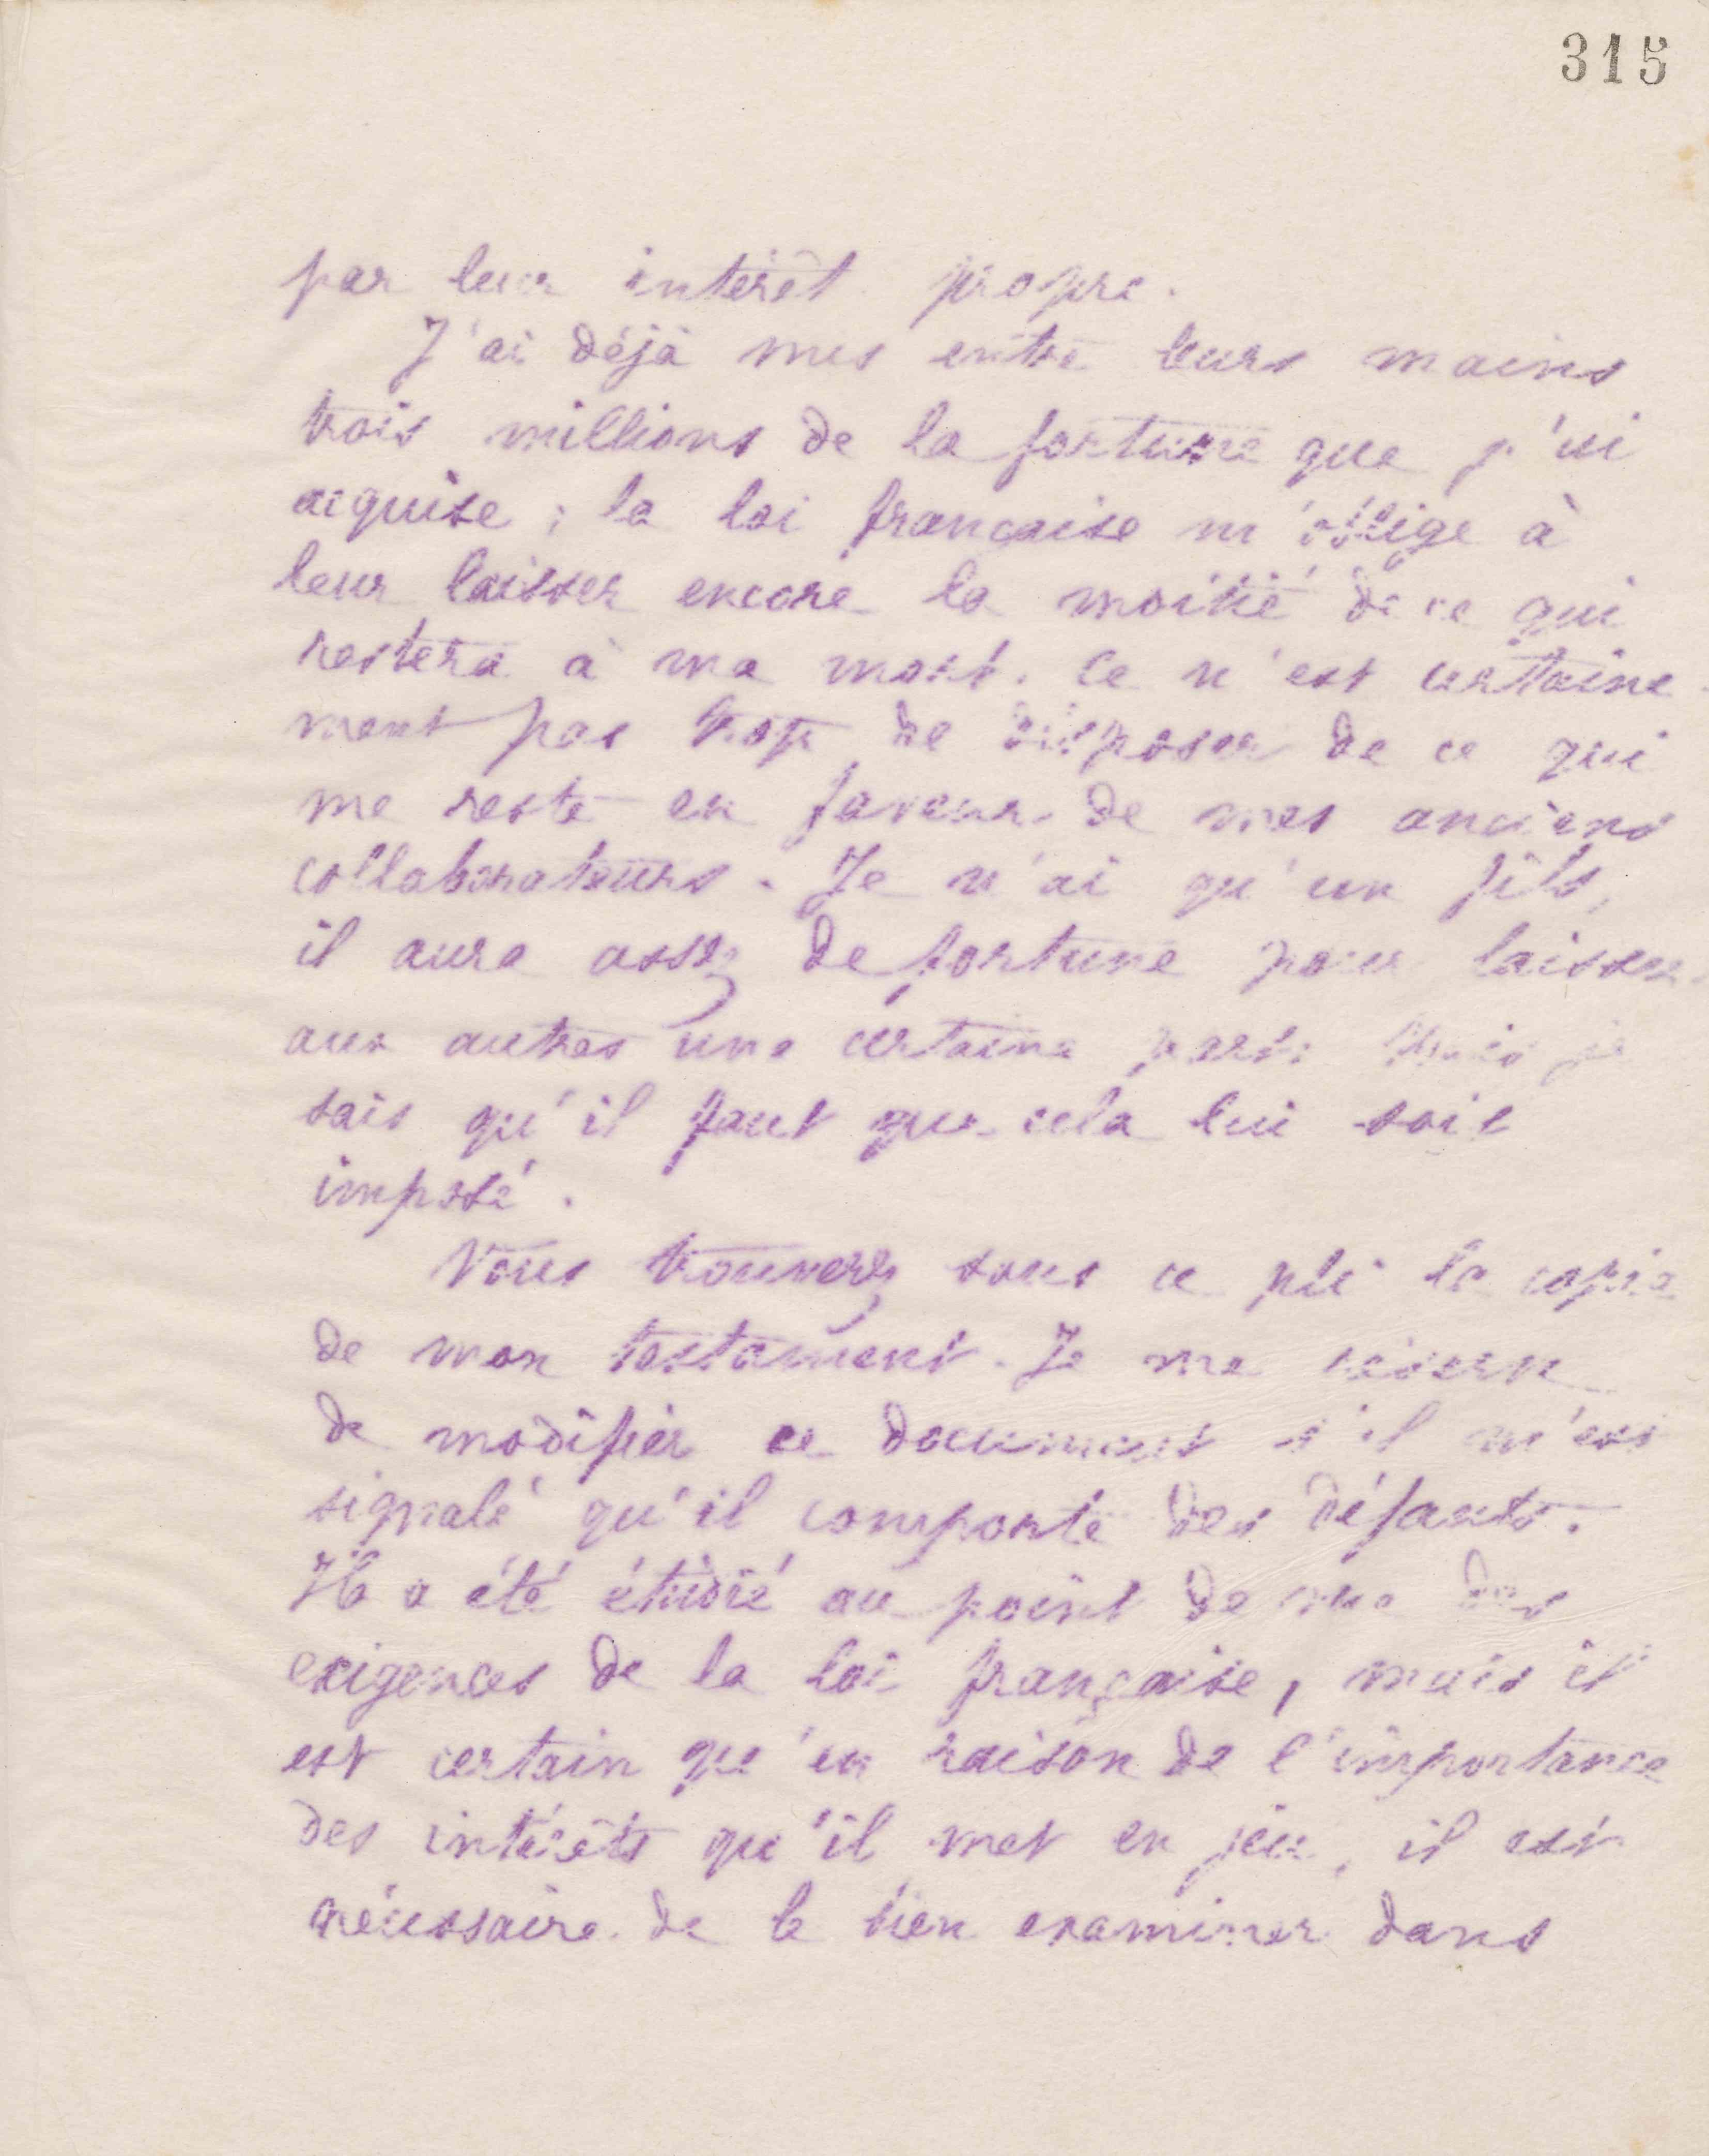 315
par leur intérêt propre.
J'ai déjà mis entre leurs mains
trois millions de la fortune que j'ai
acquise ; la loi française m'oblige à
leur laisser encore la moitié de ce qui
restera à ma mort. Ce n'est certaine
ment pas trop de disposer de ce qui
me reste en faveur de mes anciens
collaborateurs. Je n'ai qu'un fils,
il aura assez de fortune pour laisser
aux autres une certaine part. Mais je
sais qu'il faut que cela lui soit
imposé.
Vous trouverez sous ce pli la copie
de mon testament. Je me réserve
de modifier ce document s'il m'est
signalé qu'il comporte des défauts.
Il a été étudié au point de vue des
exigences de la loi française, mais il
est certain qu'en raison de l'importance
des intérêts qu'il met en jeu, il est
nécessaire de le bien examiner dans